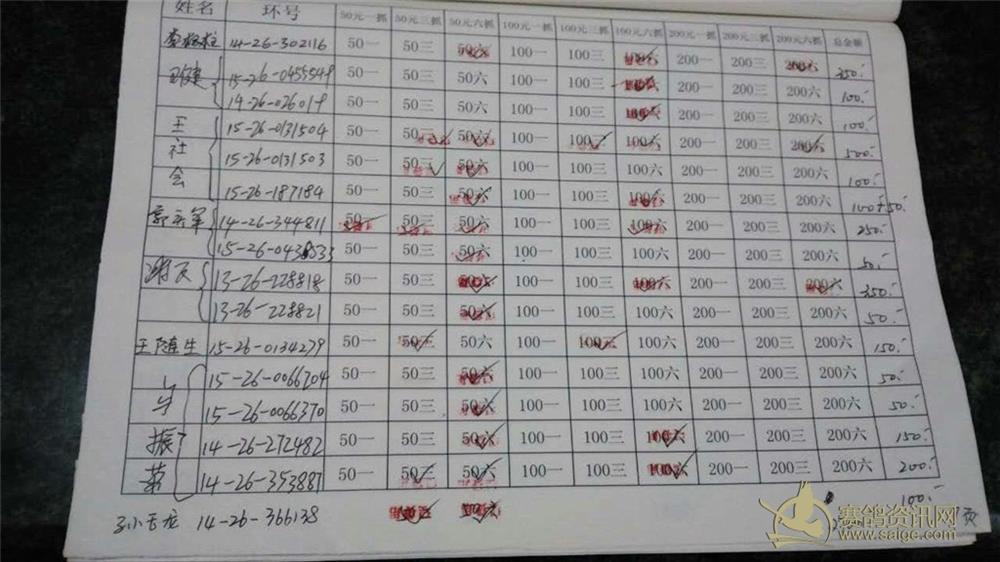 姓名 环号 50元一抓 50元三抓 50元六抓 100元一抓 100元三抓 100元六抓 200元一抓 200元三抓 200元六抓 总金额
14-26-302116 50一 50三 50六 100一 100三 100六 200一 200三 200六 350.-
15-26-0455548 50一 50三 50六 100一 100三 100六 200一 200三 200六 100.-
14-26-026019 50一 50三 50六 100一 100三 100六 200一 200三 200六 100.-
王 15-26-0131504 50一 50三 50六 100一 100三 100六 200一 200三 200六 500.-
社 15-26-0131503 50一 50三 50六 100一 100三 100六 200一 200三 200六 100.-
会 15-26-187184 50一 50三 50六 100一 100三 100六 200一 200三 200六 100+50.-
14-26-344811 50一 50三 50六 100一 100三 100六 200一 200三 200六 250.-
15-26-0438533 50一 50三 50六 100一 100三 100六 200一 200三 200六 50.-
13-26-228818 50一 50三 50六 100一 100三 100六 200一 200三 200六 350.-
13-26-228821 50一 50三 50六 100一 100三 100六 200一 200三 200六 50.-
王随生 15-26-0134279 50一 50三 50六 100一 100三 100六 200一 200三 200六 150.-
牛 15-26-0066704 50一 50三 50六 100一 100三 100六 200一 200三 200六 50.-
15-26-0066370 50一 50三 50六 100一 100三 100六 200一 200三 200六 50.-
振 14-26-272482 50一 50三 50六 100一 100三 100六 200一 200三 200六 150.-
14-26-353887 50一 50三 50六 100一 100三 100六 200一 200三 200六 200.-
14-26-366138 100.-
页
赛鸽资讯网
www.saige.com